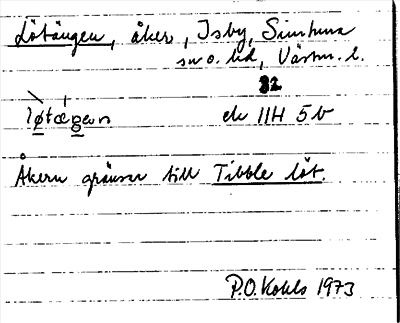 Lötängen, åker, Isby, Simtuna
sn o. hd, Västm. l.
32
løtæŋen ek 11H 5b
Åkern gränsar till Tibble löt.
P.O. Kohls 1973